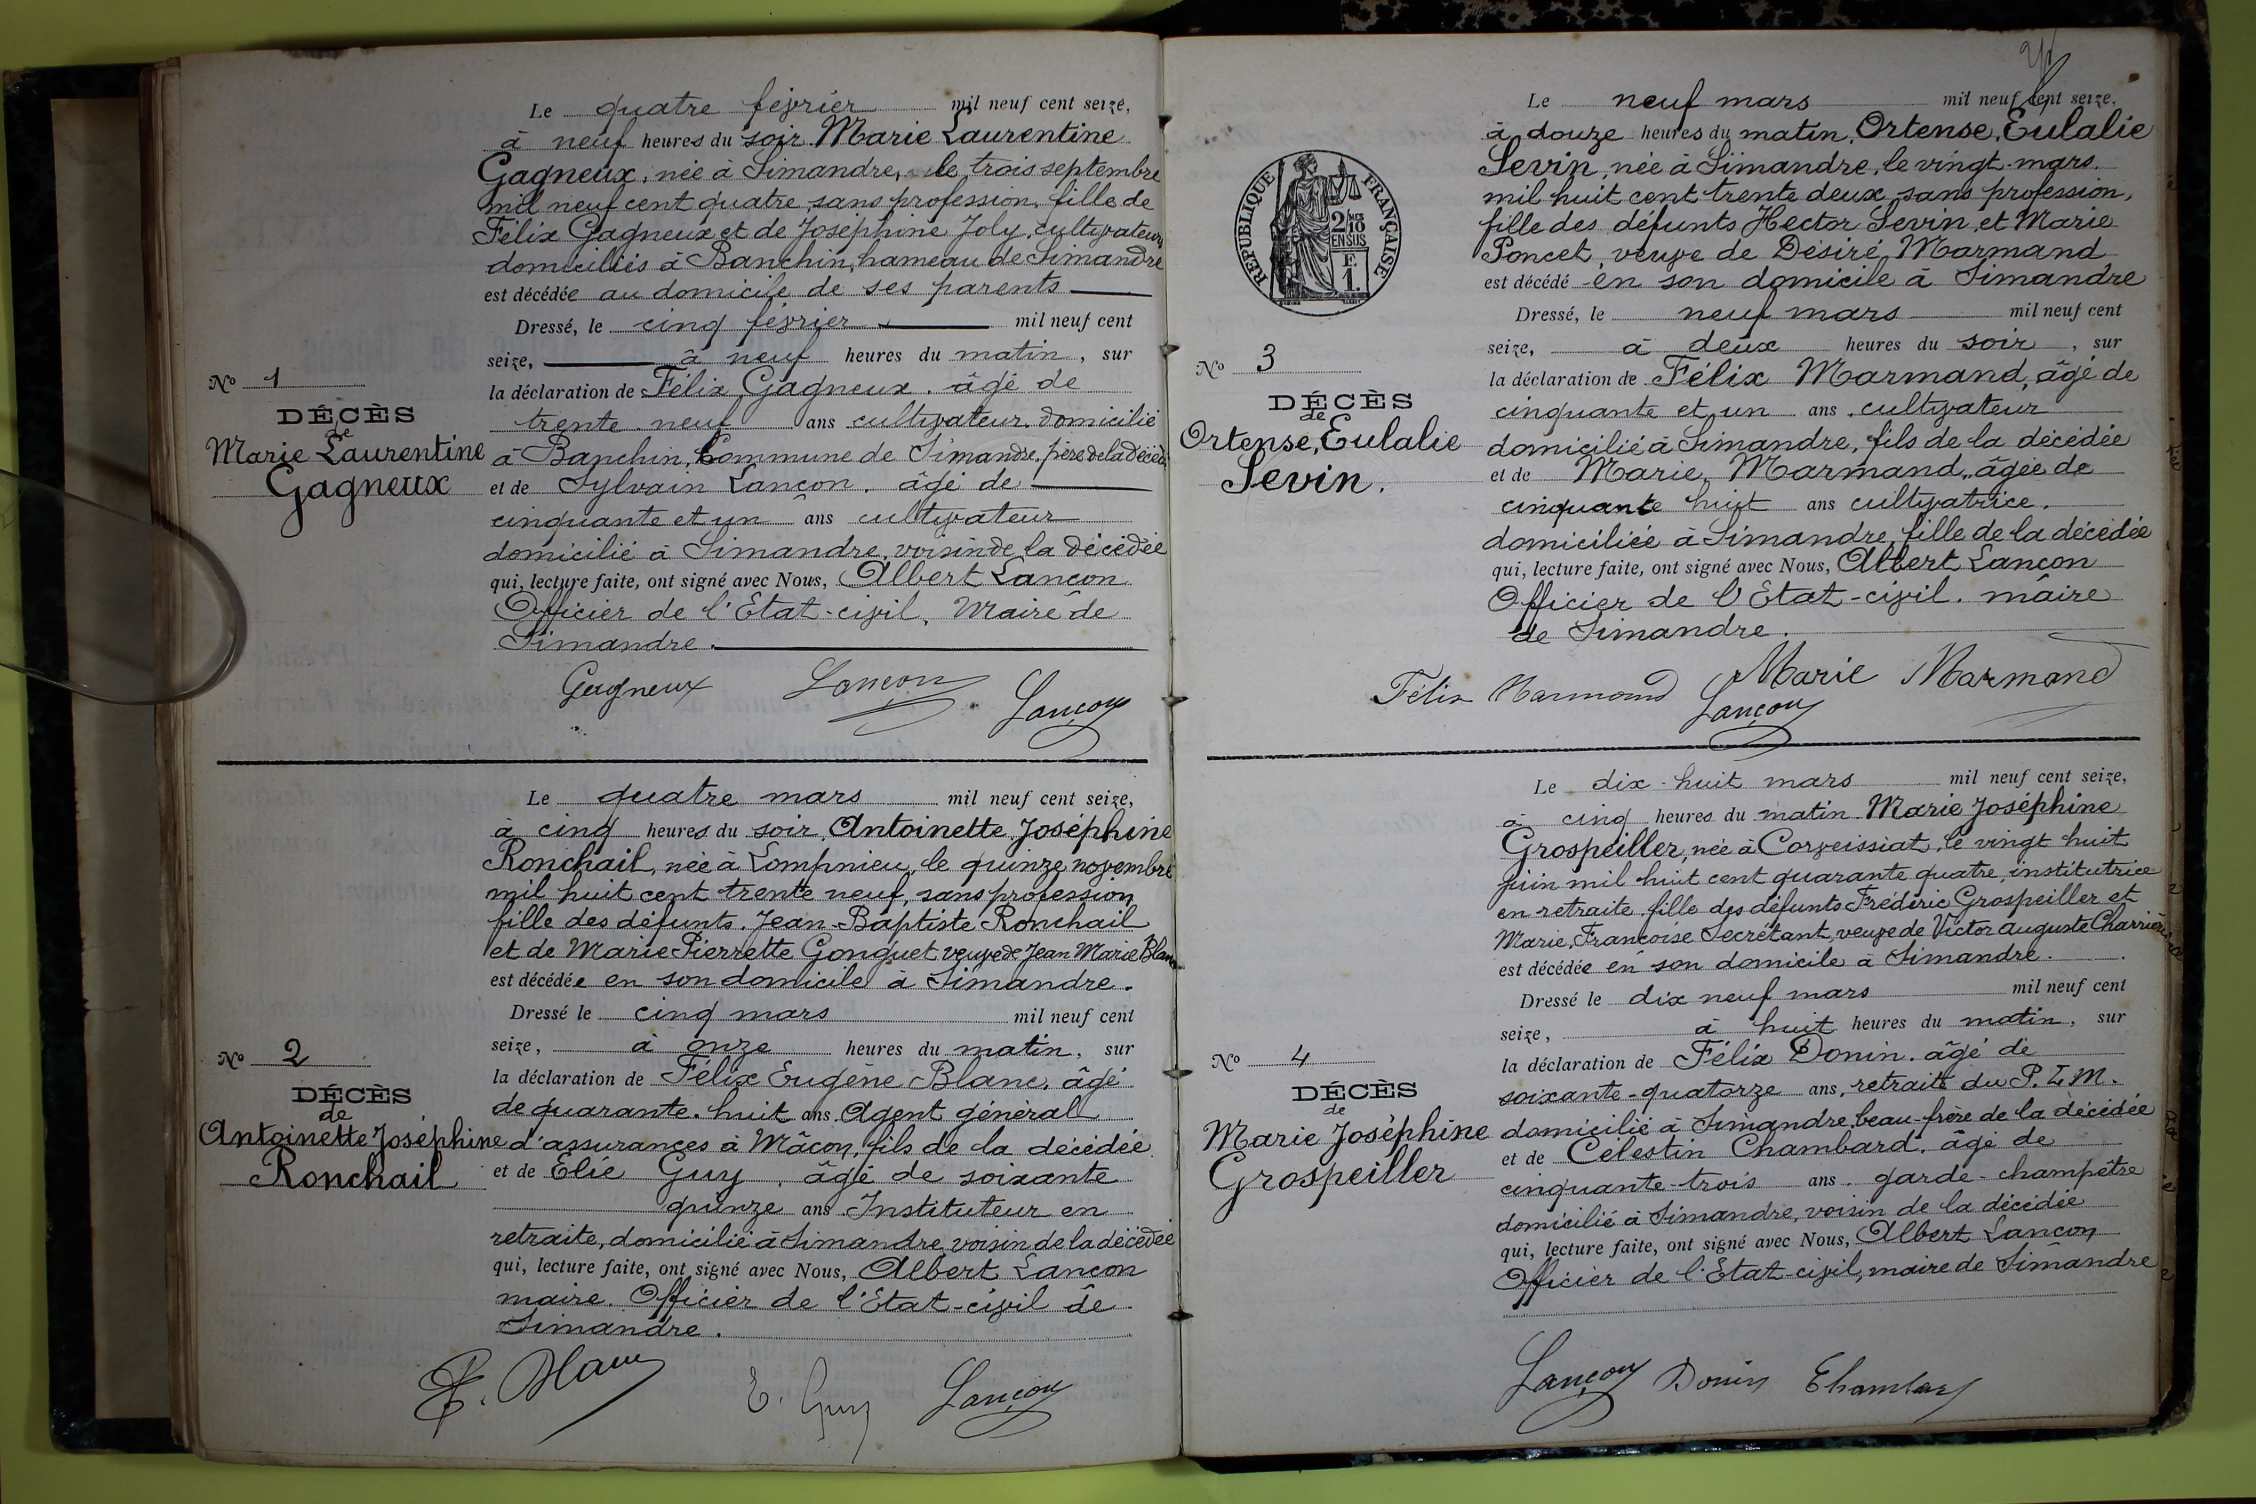 Le quatre février mil neuf cent seize,
à neuf heures du soir Marie Laurentine
Gagneux, née à Simandre, le trois septembre
mil neuf cent quatre sans profession, fille de
Félix Gagneux et de Joséphine Joly, cultivateurs
domiciliés à Banchin, hameau de Simandre
est décédée au domicile de ses parents
Dressé, le cinq février mil neuf cent
seize, à neuf heures du matin, sur
la déclaration de Félix Gagneux. âgé de
trente neuf ans cultivateur domicilié
à Banchin, Commune de Simandre, père de la décédée
et de Sylvain Lançon. âgé de
cinquante et un ans cultivateur
domicilié à Simandre, voisin de la décédée
qui, lecture faite, ont signé avec Nous, Albert Lançon
Officier de l'Etat-civil, Maire de
Simandre.
Gagneux Lançon Lançon
No 1
DÉCÈS
de
Marie Laurentine
Gagneux
Le quatre mars mil neuf cent seize,
à cinq heures du soir, Antoinette Joséphine
Ronchail, née à Lompnieu, le quinze novembre
mil huit cent trente neuf, sans profession
fille des défunts, Jean-Baptiste Ronchail
et de Marie Pierrette Gonguet veuve de Jean Marie Blanc
est décédée en son domicile à Simandre.
Dressé le cinq mars mil neuf cent
seize, à onze heures du matin, sur
la déclaration de Félix Eugène Blanc. âgé
de quarante-huit ans Agent général
d'assurances à Mâcon, fils de la décédée
et de Élie Guy, âgé de soixante
quinze ans Instituteur en
retraite, domicilié à Simandre voisin de la décédée
qui, lecture faite, ont signé avec Nous, Albert Lançon
maire. Officier de l'Etat-civil de
Simandre.
F. Blanc E. Guy Lançon
No 2
DÉCÈS
de
Antoinette Joséphine
Ronchail
Le neuf mars mil neuf cent seize,
à douze heures du matin, Ortense, Eulalie
Sevin, née à Simandre, le vingt mars
mil huit cent trente deux sans profession,
fille des défunts Hector Sevin et Marie
Poncet, veuve de Désiré Marmand
est décédé en son domicile à Simandre
Dressé, le neuf mars mil neuf cent
seize, à deux heures du soir, sur
la déclaration de Félix Marmand, âgé de
cinquante et un ans, cultivateur
domicilié à Simandre, fils de la décédée
et de Marie Marmand, âgée de
cinquante huit ans cultivatrice.
domiciliée à Simandre, fille de la décédée
qui, lecture faite, ont signé avec Nous, Albert Lançon
Officier de l'Etat-civil. maire
de Simandre.
Félix Marmand Lançon Marie Marmand
RÉPUBLIQUE FRANÇAISE
2/10
EN SUS
F.
1.
No 3
DÉCÈS
de
Ortense, Eulalie
Sevin.
Le dix-huit mars mil neuf cent seize,
à cinq heures du matin Marie Joséphine
Grospeiller, née à Corveissiat, le vingt huit
juin mil huit cent quarante quatre, institutrice
en retraite, fille des défunts Frédéric Grospeiller et
Marie, Françoise Secrétant, veuve de Victor Auguste Charrière
est décédée en son domicile à Simandre.
Dressé le dix neuf mars mil neuf cent
seize, à huit heures du matin, sur
la déclaration de Félix Donin. âgé de
soixante-quatorze ans, retraité du P. L M.
domicilié à Simandre, beau-frère de la décédée
et de Célestin Chambard. âgé de
cinquante-trois ans. garde-champêtre
domicilié à Simandre, voisin de la décédée
qui, lecture faite, ont signé avec Nous, Albert Lançon
Officier de l'Etat-civil, maire de Simandre
Lançon Donin Chambard
No 4
DÉCÈS
de
Marie Joséphine
Grospeiller